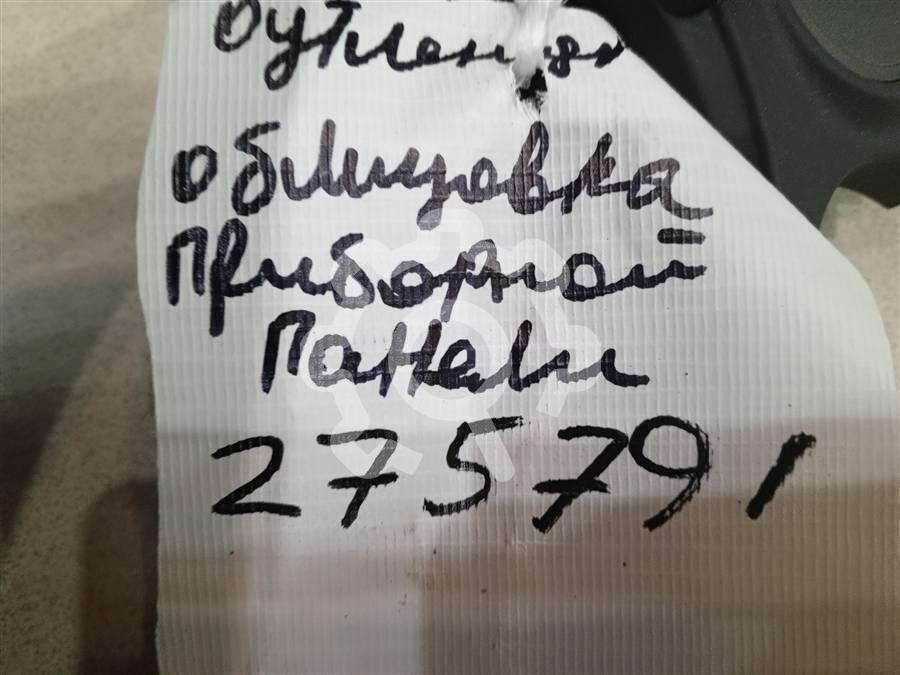 Оутлендер
облицовка
приборной
панели
275791